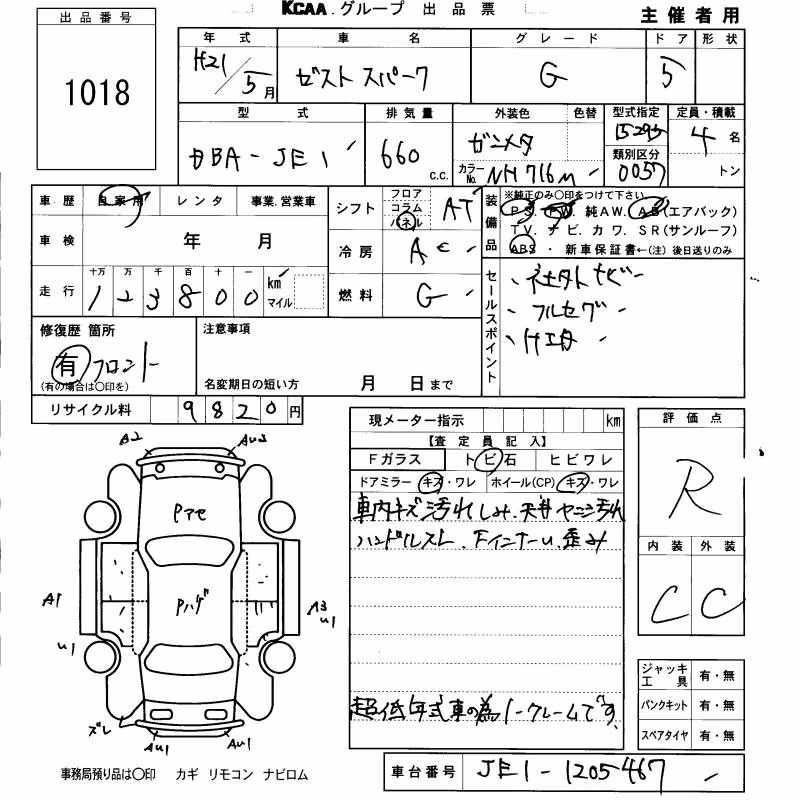 KCAA.グループ 出品票
主催者用
出品番号
1018
年式 車名 グレード ドア 形状
H21/5月 ゼスト スパーク G 5
型式 排気量 外装色 色替 型式指定 定員・積載
DBA-JE1 660 c.c. ガンメタ 15295 4名
カラーNo. NH716M 類別区分 0057 トン
車歴 自家用 レンタ 事業.営業車
シフト フロア コラム パネル AT
装備品 ※純正のみ○印をつけて下さい
PS. PW. 純AW. AB(エアバック)
TV. ナビ. カワ. SR(サンルーフ)
ABS . 新車保証書←(注)後日送りのみ
車検 年 月
冷房 AC
走行 十万 万 千 百 十 一
123800 km マイル
燃料 G
セールスポイント
社外ナビ
フルセグ
修復歴 箇所
有 フロント
(有の場合は○印を)
注意事項
名変期日の短い方 月 日まで
リサイクル料 9820円
現メーター指示 km
【査定員記入】
Fガラス トビ石 ヒビワレ
ドアミラー キズ・ワレ ホイール(CP) キズ・ワレ
車内キズ汚れしみ.天井ヤニ汚れ
ハンドルスレ.FインナーU.歪み
超低年式車の為ノークレームです
評価点
R
内装 外装
C C
ジャッキ工具 有・無
パンクキット 有・無
スペアタイヤ 有・無
A2 AU2
Pアセ
Pハゲ
A1
U1
A3
U1
ズレ
AU1 AU1
事務局預り品は○印 カギ リモコン ナビロム
車台番号 JE1-1205467